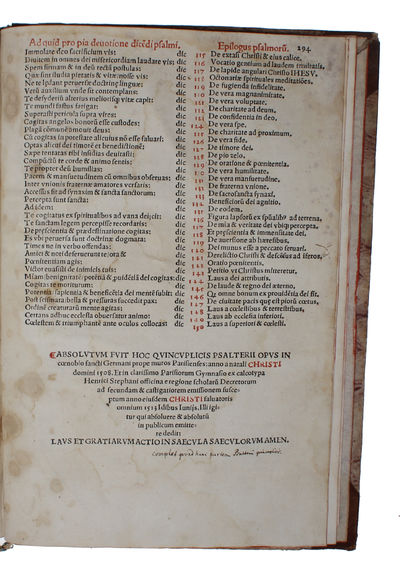 Ad quid pro pia deuotione dicēdi psalmi. Epilogus psalmorū. 294
Immolate deo sacrificium vis: dic 115 De extasi Christi & eius calice.
Diuitem in omnes dei misericordiam laudate vis: dic 116 Vocatio gentium ad laudem trinitatis.
Spem firmam & in deū recti postulas: dic 117 De lapide angulari Christo IHESV.
Quæ sint studia pietatis & vitæ nosse vis: dic 118 Octonariæ spirituales meditatiōes.
Ne te lædant peruersæ doctrinę linguæ: dic 119 De fugienda infidelitate.
Verū auxilium vnde sit contemplans: dic 120 De vera magnanimitate.
Te desyderiū alterius meliorisq; vitæ capit: dic De vera voluptate.
Te mundi fastus fatigat: dic De charitate ad deum.
Superasti pericula supra vires: dic De confidentia in deo.
Cogitas angelos bonorū esse custodes: dic 124 De vera spe.
Plagā cōmune amouit deus: dic De charitate ad proximum.
Cū cogitas in potestate alicuius nō esse saluari: dic De vera fide.
Optas alicui dei timorē et benedictionē: dic De timore dei.
Sæpe tentatus tibi insidias deuitasti: dic De pio zelo.
Compūctū te corde & animo sentis: dic De oratione & pœnitentia.
Te propter deū humilias: dic 130 De vera humilitate.
Pacem & mansuetudinem cū omnibus obseruas: dic De vera mansuetudine.
Inter vnionis fraternæ amatores versaris: dic De fraterna vnione.
Accessisti ad synaxim & sancta sanctorum: dic De sacrosancta synaxi.
Percepta sunt sancta: dic Beneficiorū dei agnitio.
Adidem dic De eodem.
Te cogitatus ex spiritualibus ad vana deiicit: dic Figura lapsorū ex spūalibꝰ ad terrena.
Te sanctam legem percepisse recordaris: dic De mīa & veritate dei vbiq; percepta.
De pręscientia & prædestinatione cogitas: dic Et præscientia & immensitate dei.
Es vbi peruersa sunt doctrinæ dogmata: dic De auersione ab hæresibus.
Times ne in verbo offendas: dic Dei munus esse a peccato seruari.
Amici & noti deseruerunt te/ora & dic 141 Derelictio Christi & descēsus ad īferos.
Pœnitentiam agis: dic 142 Oratio pœnitentis.
Victor euasisti de inimicis tuis: dic 143 Petitio vt Christus misereretur.
Miram benignitatē potētiā & pūidētiā dei cogitas: dic 144 Laus a dei attributis.
Cogitas te moriturum: dic 145 De laude & regno dei æterno.
Potentia sapientia & beneficētia dei mentē subit: dic 146 Qꝫ omne bonum ex prouidētia dei sit.
Post ieslinata bella & pressuras succedit pax: dic 147 De ciuitate pacis quę est piorū cœtus.
Ordinē creaturarū mente agitas: dic 148 Laus a cœlestibus & terrestribus.
Certans adhuc ecclesia obuersatur animo: dic 149 Laus ab ecclesia inferiori.
Cœlestem & triumphātē ante oculos collocas: dic 150 Laus a superiori & cœlesti.
¶ABSOLVTVM FVIT HOC QVINCVPLICIS PSALTERII OPVS IN
cœnobio sancti Germani prope muros Parisienses: anno a natali CHRISTI
domini 1508. Et in clarissimo Parisiorum Gymnasio ex calcotypa
Henrici Stephani officina e regione scholarū Decretorum
ad secundam & castigatiorem emissionem susce-
ptum anno eiusdem CHRISTI saluatoris
omnium 1513 Idibus Iunijs. Illi igi-
tur qui absoluere & absolutū
in publicum emitte-
re dedit:
LAVS ET GRATIARVM ACTIO IN SAECVLA SAECVLORVM AMEN.